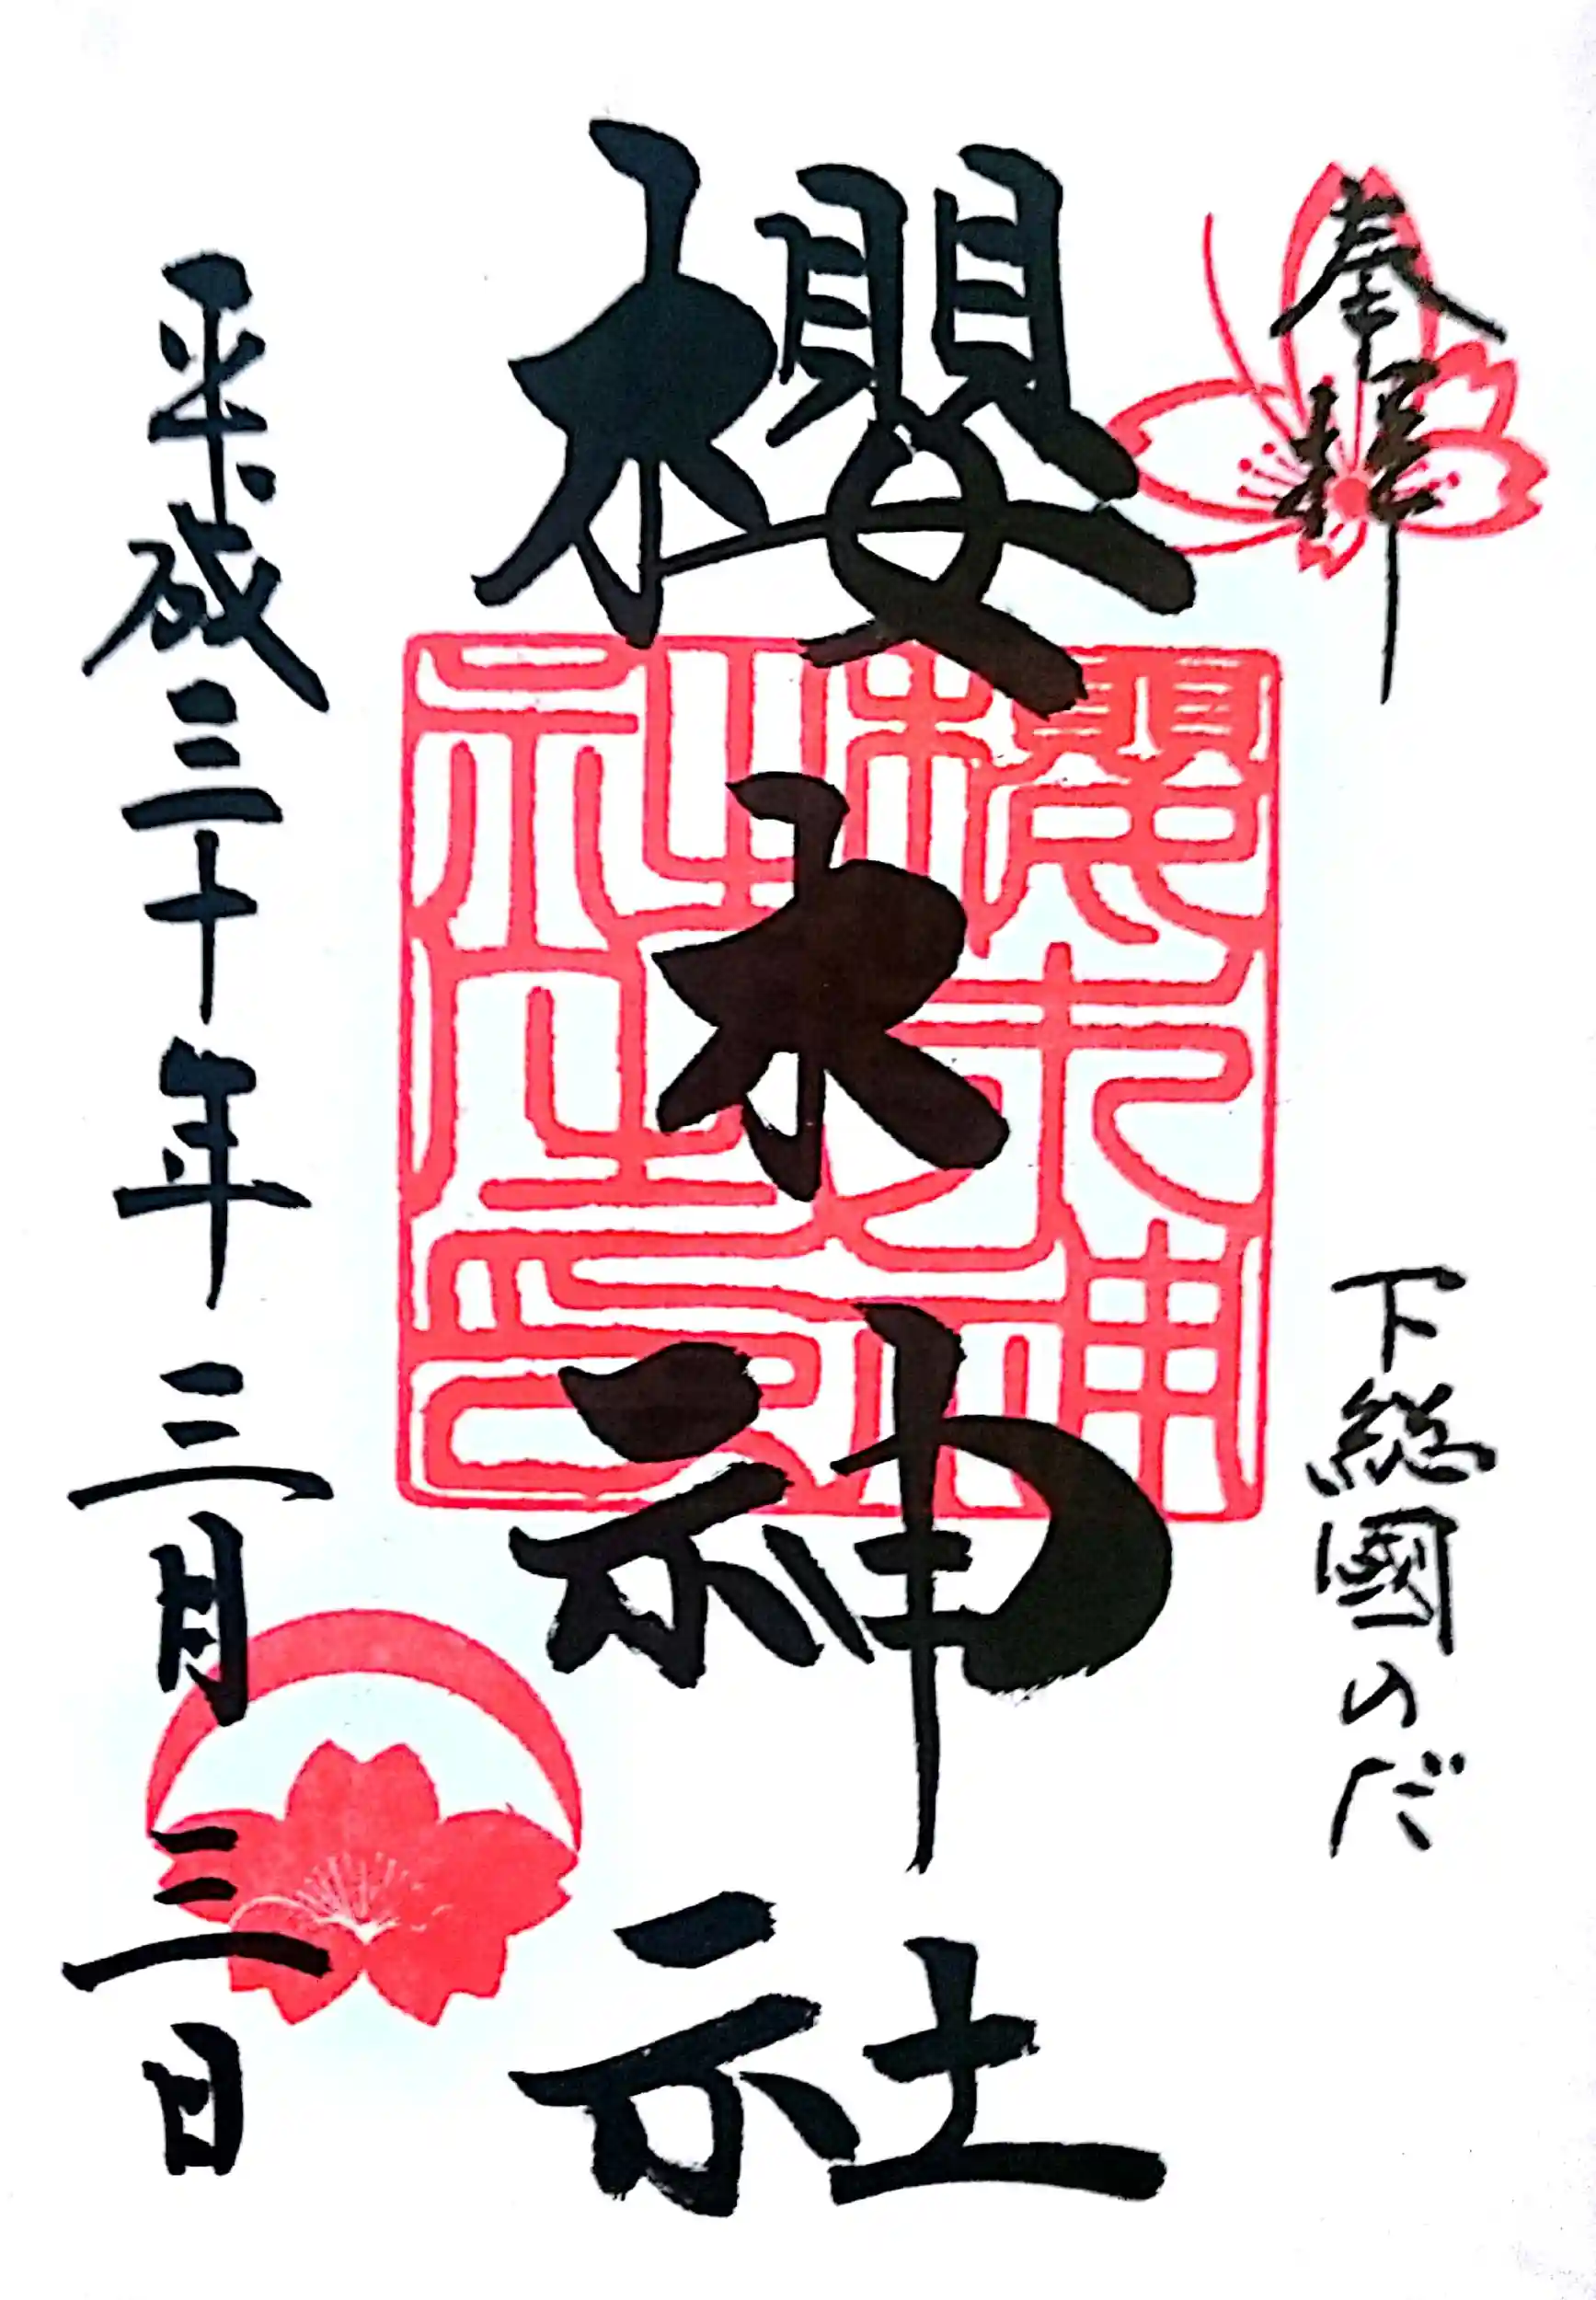 奉拝
下総國のだ
櫻木神社
櫻木神社之印
平成三十年三月三日